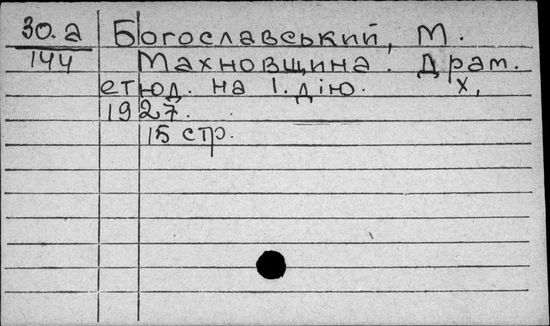 30.а Богославський, М.
144 Махновщина. Драм.
етюд. на 1. дію. Х,
1927.
15 стр.